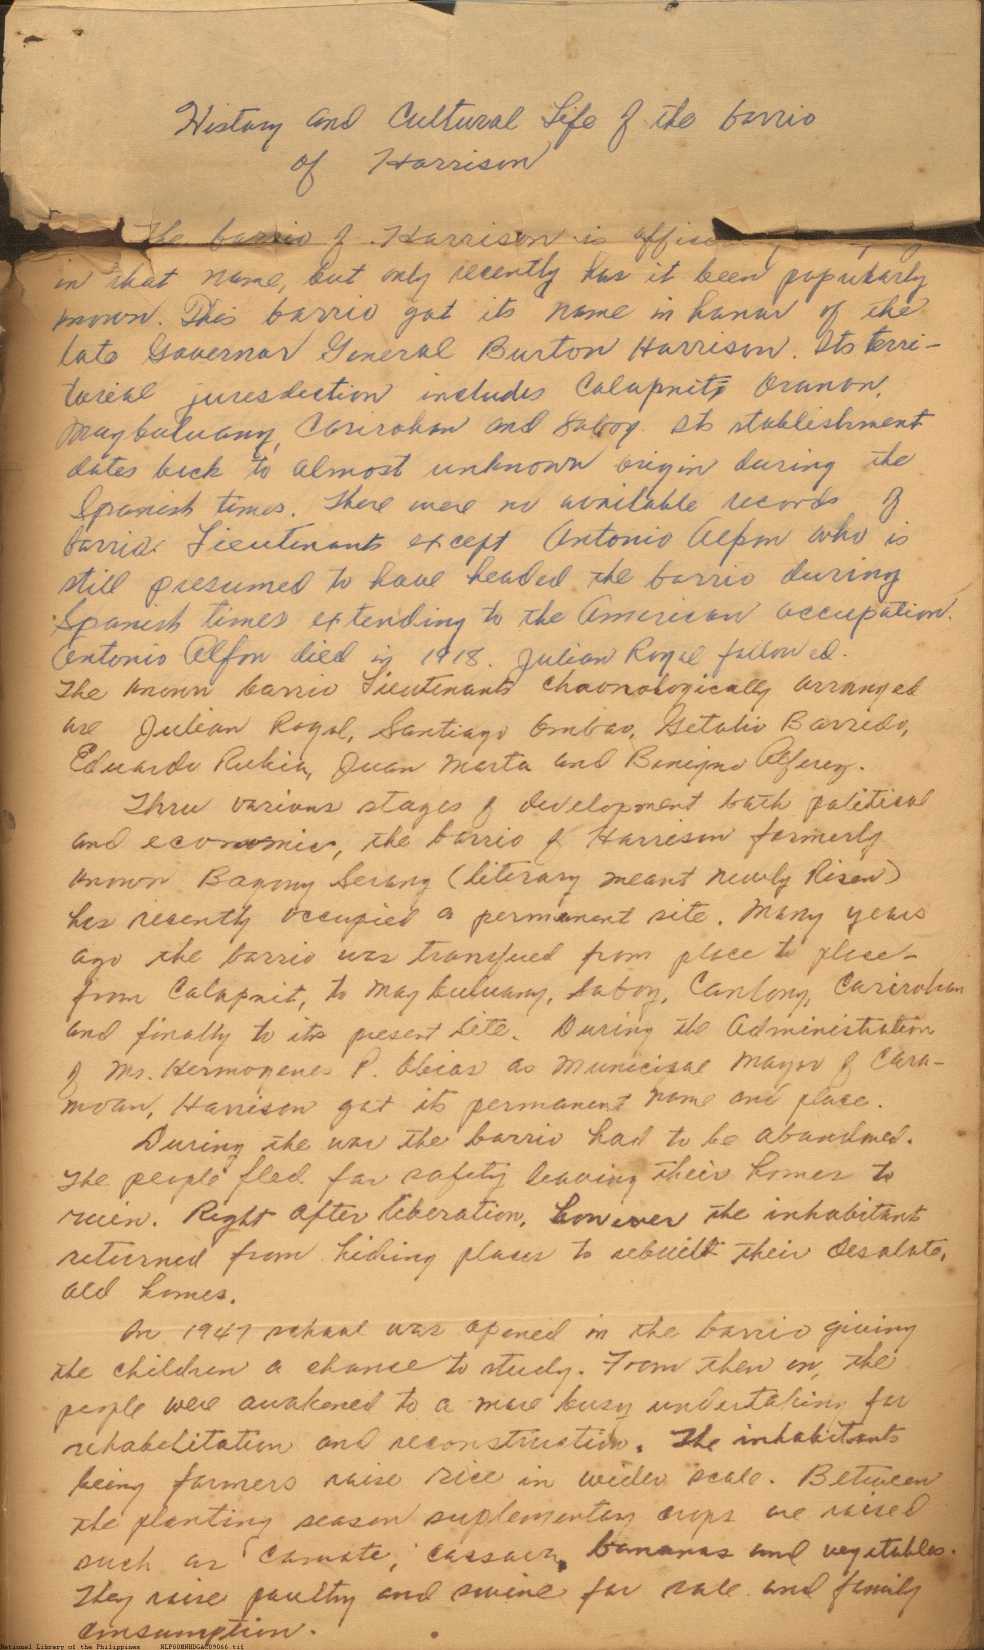 History and Cultural Life of the barrio
of Harrison
The barrio of Harrison is
in that name, but only recently has it been popularly
known. This barrio got its name in honor of the
late Governor General Burton Harrison. Its terri-
torial juresdiction includes Calapnit, Oranon,
Maybuluang, Carirohan and Saboy. Its stablishment
dates back to almost unknown origin during the
Spanish times. There were no available records of
barrio Lieutenants except Antonio Alfon who is
still presumed to have headed the barrio during
Spanish times extending to the American occupation.
Antonio Alfon died in 1918. Julian Rogal followed.
The known barrio Lieutenants chronologically arranged
are Julian Rogal, Santiago Ombao, Getulio Barredo,
Eduardo Rubia, Juan Marta and Benigno Alferez.
Thru various stages of development both political
and economic, the barrio of Harrison formerly
known Bagong Serang (literary meant newly Risen)
has recently occupied a permanent site. Many years
ago the barrio was transfued from place to place-
from Calapnit, to Maybuluang, Saboy, Canlong, Carirohan
and finally to its present Site. During the Administration
of Mr. Hermogenes P. Obias as Municipal Mayor of Cara-
moan, Harrison got its permanent name and place.
During the war the barrio had to be abandoned.
The people fled for safety leaving their homes to
ruin. Right after liberation, however the inhabitant
returned from hiding places to rebuilt their desolate,
old homes.
In 1947 school was opened in the barrio giving
the children a chance to study. From then on, the
people were awakened to a more busy undertaking for
rehabilitation and reconstruction. The inhabitants
being farmers raise rice in wider scale. Between
the planting season suplementary crops are raised
such as camote, cassava, bananas and vegetables.
They raise poultry and swine for sale and family
consumption.
National Library of the Philippines